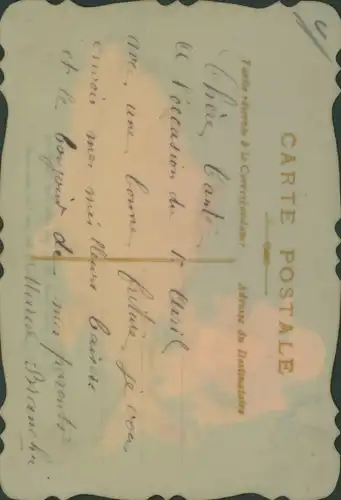 CARTE POSTALE
Partie réservée à la Correspondance
Adresse du Destinataire
Chère Tante
A l'occasion du 1er Avril
avec une bonne friture je vous
envoir mes meilleurs baisers
et le bonjour de mes parents
Marcel